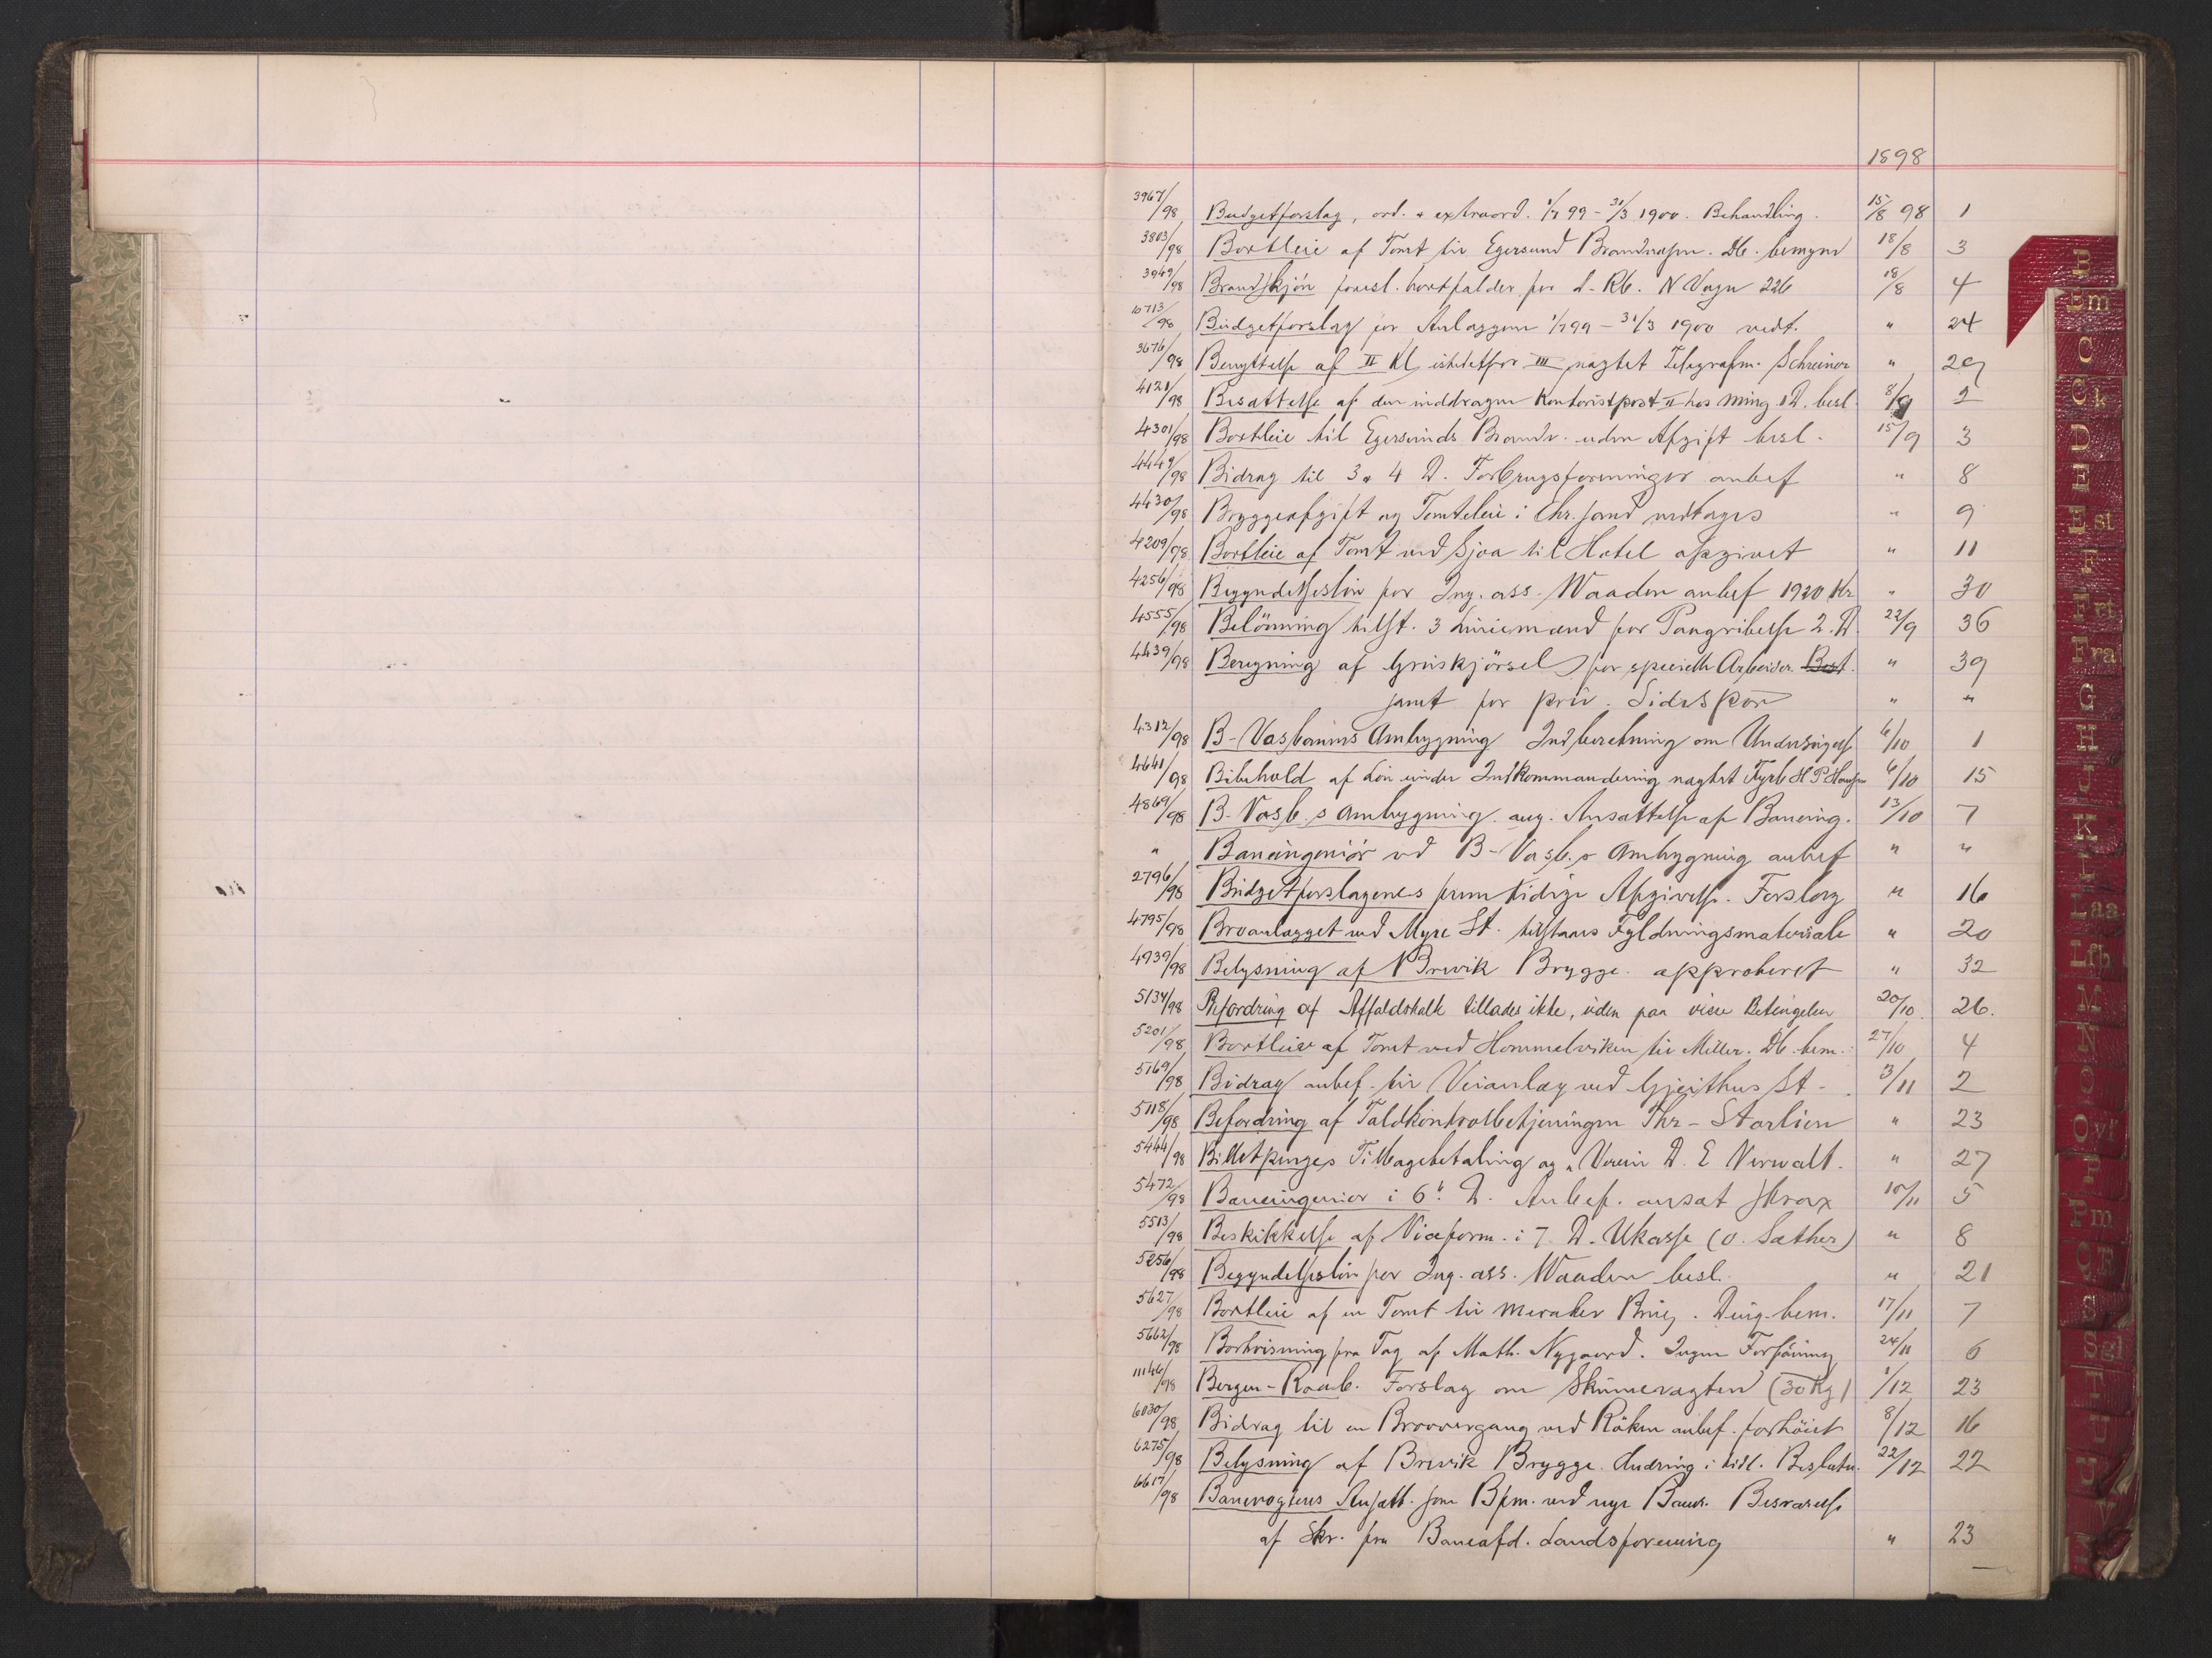 1898
3967/98 Budgetforslag, ord. & extraord. 1/7 99 – 31/3 1900. Behandling. 15/8 98 1
3803/98 Bortleie af Tomt til Egersund Brandvæsen. Db. bemynd 18/8 3
3949/98 Brandskjøn foresl. bortfalder for L. Rb. N Vogn 226 18/8 4
10713/98 Budgetforslag for Anlæggene 1/7 99 – 31/3 1900 vedt. " 24
3676/98 Benyttelse af II Kl istedetfor III nægtet Telegrafm. Schreiner " 29
4121/98 Besættelse af den inddragne Kontoristpost II hos Ming. 1 D. besl. 8/9 2
4301/98 Bortleie til Egersunds Brandv. uden Afgift besl. 15/9 3
4449/98 Bidrag til 3 & 4 D. Forbrugsforeninger anbef " 8
4430/98 Bryggeafgift og Tomteleie i Chr.sand vedtages " 9
4209/98 Bortleie af Tomt ved Sjoa til Hotel afgivet " 11
4256/98 Begyndelsesløn for Ing. ass. Waaden anbef 1920 Kr " 30
4555/98 Belönning tilst. 3 Liniemænd for Paagribelse 2. D. 22/9 36
4439/98 Beregning af Gruskjörsel for specielle Arbeider. Best. " 39
samt for priv. Sidespor " "
4312/98 B-Vosbanens Ombygning Indberetning om Undersøgelse 6/10 1
4641/98 Bibehold af Løn under Indkommandering nægtet Fyrb H P Hansen 6/10 15
4869/98 B-Vosb.s Ombygning. ang. Ansættelse af Baneing. 13/10 7
" Baneingeniör ved B-Vosb.s Ombygning anbef " "
2796/98 Budgetforslagenes fremtidige Afgivelse. Forslag " 16
4795/98 Broanlægget ved Myre St. tilstaaes Fyldningsmateriale " 20
4939/98 Belysning af Brevik Brygge. approberet " 32
5134/98 Befordring af Affaldskalk tillades ikke, uden paa visse Betingelser 20/10 26.
5201/98 Bortleie af Tomt ved Hommelviken til Miller. Db. bem. 27/10 4
5169/98 Bidrag anbef. til Veianlæg ved Gjeithus St. 3/11 2
5118/98 Befordring af Toldkontrolbetjeningen Thr – Storlien " 23
5444/98 Billetpenges Tilbagebetaling og "Verein D. E Verwalt. " 27
5472/98 Baneingeniør i 6te D. Anbef. ansat strax 10/11 5
5513/98 Beskikkelse af Viceform. i 7. D. Ukasse (O. Sæther) " 8
5256/98 Begyndelseslön for Ing. ass. Waaden besl. " 21
5627/98 Bortleie af en Tomt til Meraker Brug. Ding. bem. 17/11 7
5662/98 Bortvisning fra Tog af Math. Nygaard. Ingen Forføining 24/11 6
11146/98 Bergen-Roasb. Forslag om Skinnevægten (30 Kg) 1/12 23
6030/98 Bidrag til en Broovergang ved Röken anbef. forhöiet 8/12 16
6275/98 Belysning af Brevik Brygge. Ændring i tidl. Beslutn. 22/12 22
6617/98 Banevogteres Ansætt. som Bfm. ved nye Baner. Besvarelse
af Skr. fra Baneafd. Landsforening " 23
B
Bm
C
Ck
D
E
Est
F
Frt
Fra
G
H
J
K
L
Laa
Lfb
M
N
O
Ovf
P
Pm
QR
S
Sgl
T
U
V